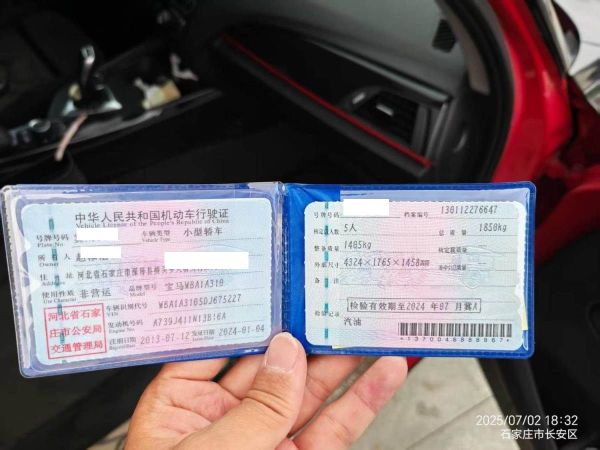 中华人民共和国机动车行驶证
Vehicle License of the People's Republic of China
号牌号码
Plate No.
车辆类型 小型轿车
Vehicle Type
所有人
Owner
住址 河北省石家庄市
使用性质 非营运
Use Character
品牌型号 宝马WBA1A310
河北省石家
庄市公安局
交通管理局
车辆识别代号
发动机号码
Engine No.
注册日期 2013-07-12
发证日期 2024-01-04
号牌号码
档案编号 130112276647
核定载人数 5人
总质量 1850kg
整备质量 1405kg
核定载质量
外廓尺寸 4324×1765×1458mm
准牵引总质量
备注
检验有效期至2024年07月冀A
检验记录
汽油
2025/07/02 18:32
石家庄市长安区